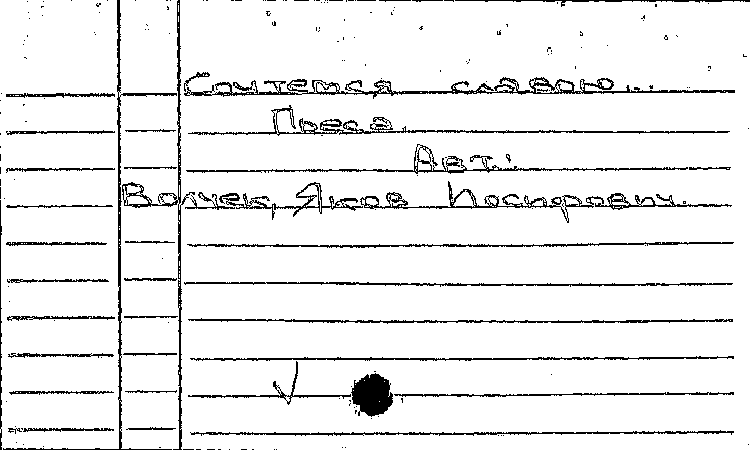 Сочтемся славою...
Пьеса.
Авт.:
Волчек, Яков Иосифович.